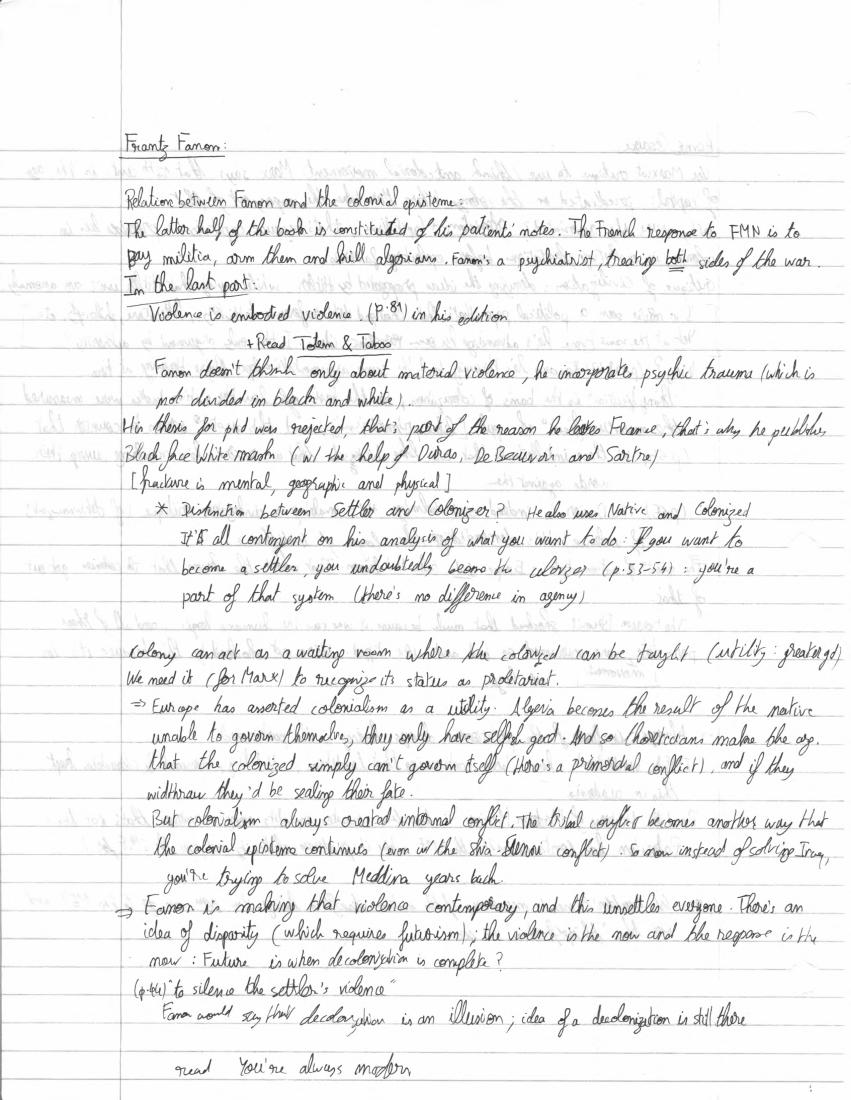 Frantz Fanon:
Relation between Fanon and the colonial episteme:
The latter half of the book is constituted of his patients' notes. The French response to FMN is to
pay militia, arm them and kill algerians. Fanon's a psychiatrist, treating both sides of the war.
In the last part:
Violence is embodied violence. (p.81) in his edition
+Read Totem & Taboo
Fanon doesn't think only about material violence, he incorporates psychic trauma (which is
not divided in black and white).
His thesis for phd was rejected, that's part of the reason he leaves France, that's why he publishes
Black face White mask (w/ the help of Duras, De Beauvoir and Sartre)
[fracture is mental, geographic and physical]
* Distinction between Settler and Colonizer? He also uses Native and Colonized
It's all contingent on his analysis of what you want to do: If you want to
become a settler, you undoubtedly become the colonizer (p.53-54): you're a
part of that system (there's no difference in agency)
Colony can act as a waiting room where the colonized can be taught (utility: greater gd)
We need it (for Marx) to recognize its status as proletariat.
⇒ Europe has asserted colonialism as a utility. Algeria becomes the result of the native
unable to govern themselves, they only have selfish good. And so theoreticians make the arg.
that the colonized simply can't govern itself (there's a primordial conflict), and if they
widthraw they'd be sealing their fate.
But colonialism always created internal conflict. The tribal conflict becomes another way that
the colonial episteme continues (even w/ the Shia-Sunni conflict). So now instead of solving Iraq,
you're trying to solve Meddina years back.
⇒ Fanon is making that violence contemporary, and this unsettles everyone. There's an
idea of disparity (which requires futurism); the violence is the now and the response is the
now: Future is when decolonization is complete?
"to silence the settler's violence"
Fanon would say that decolonization is an illusion; idea of a decolonization is still there
read You're always modern